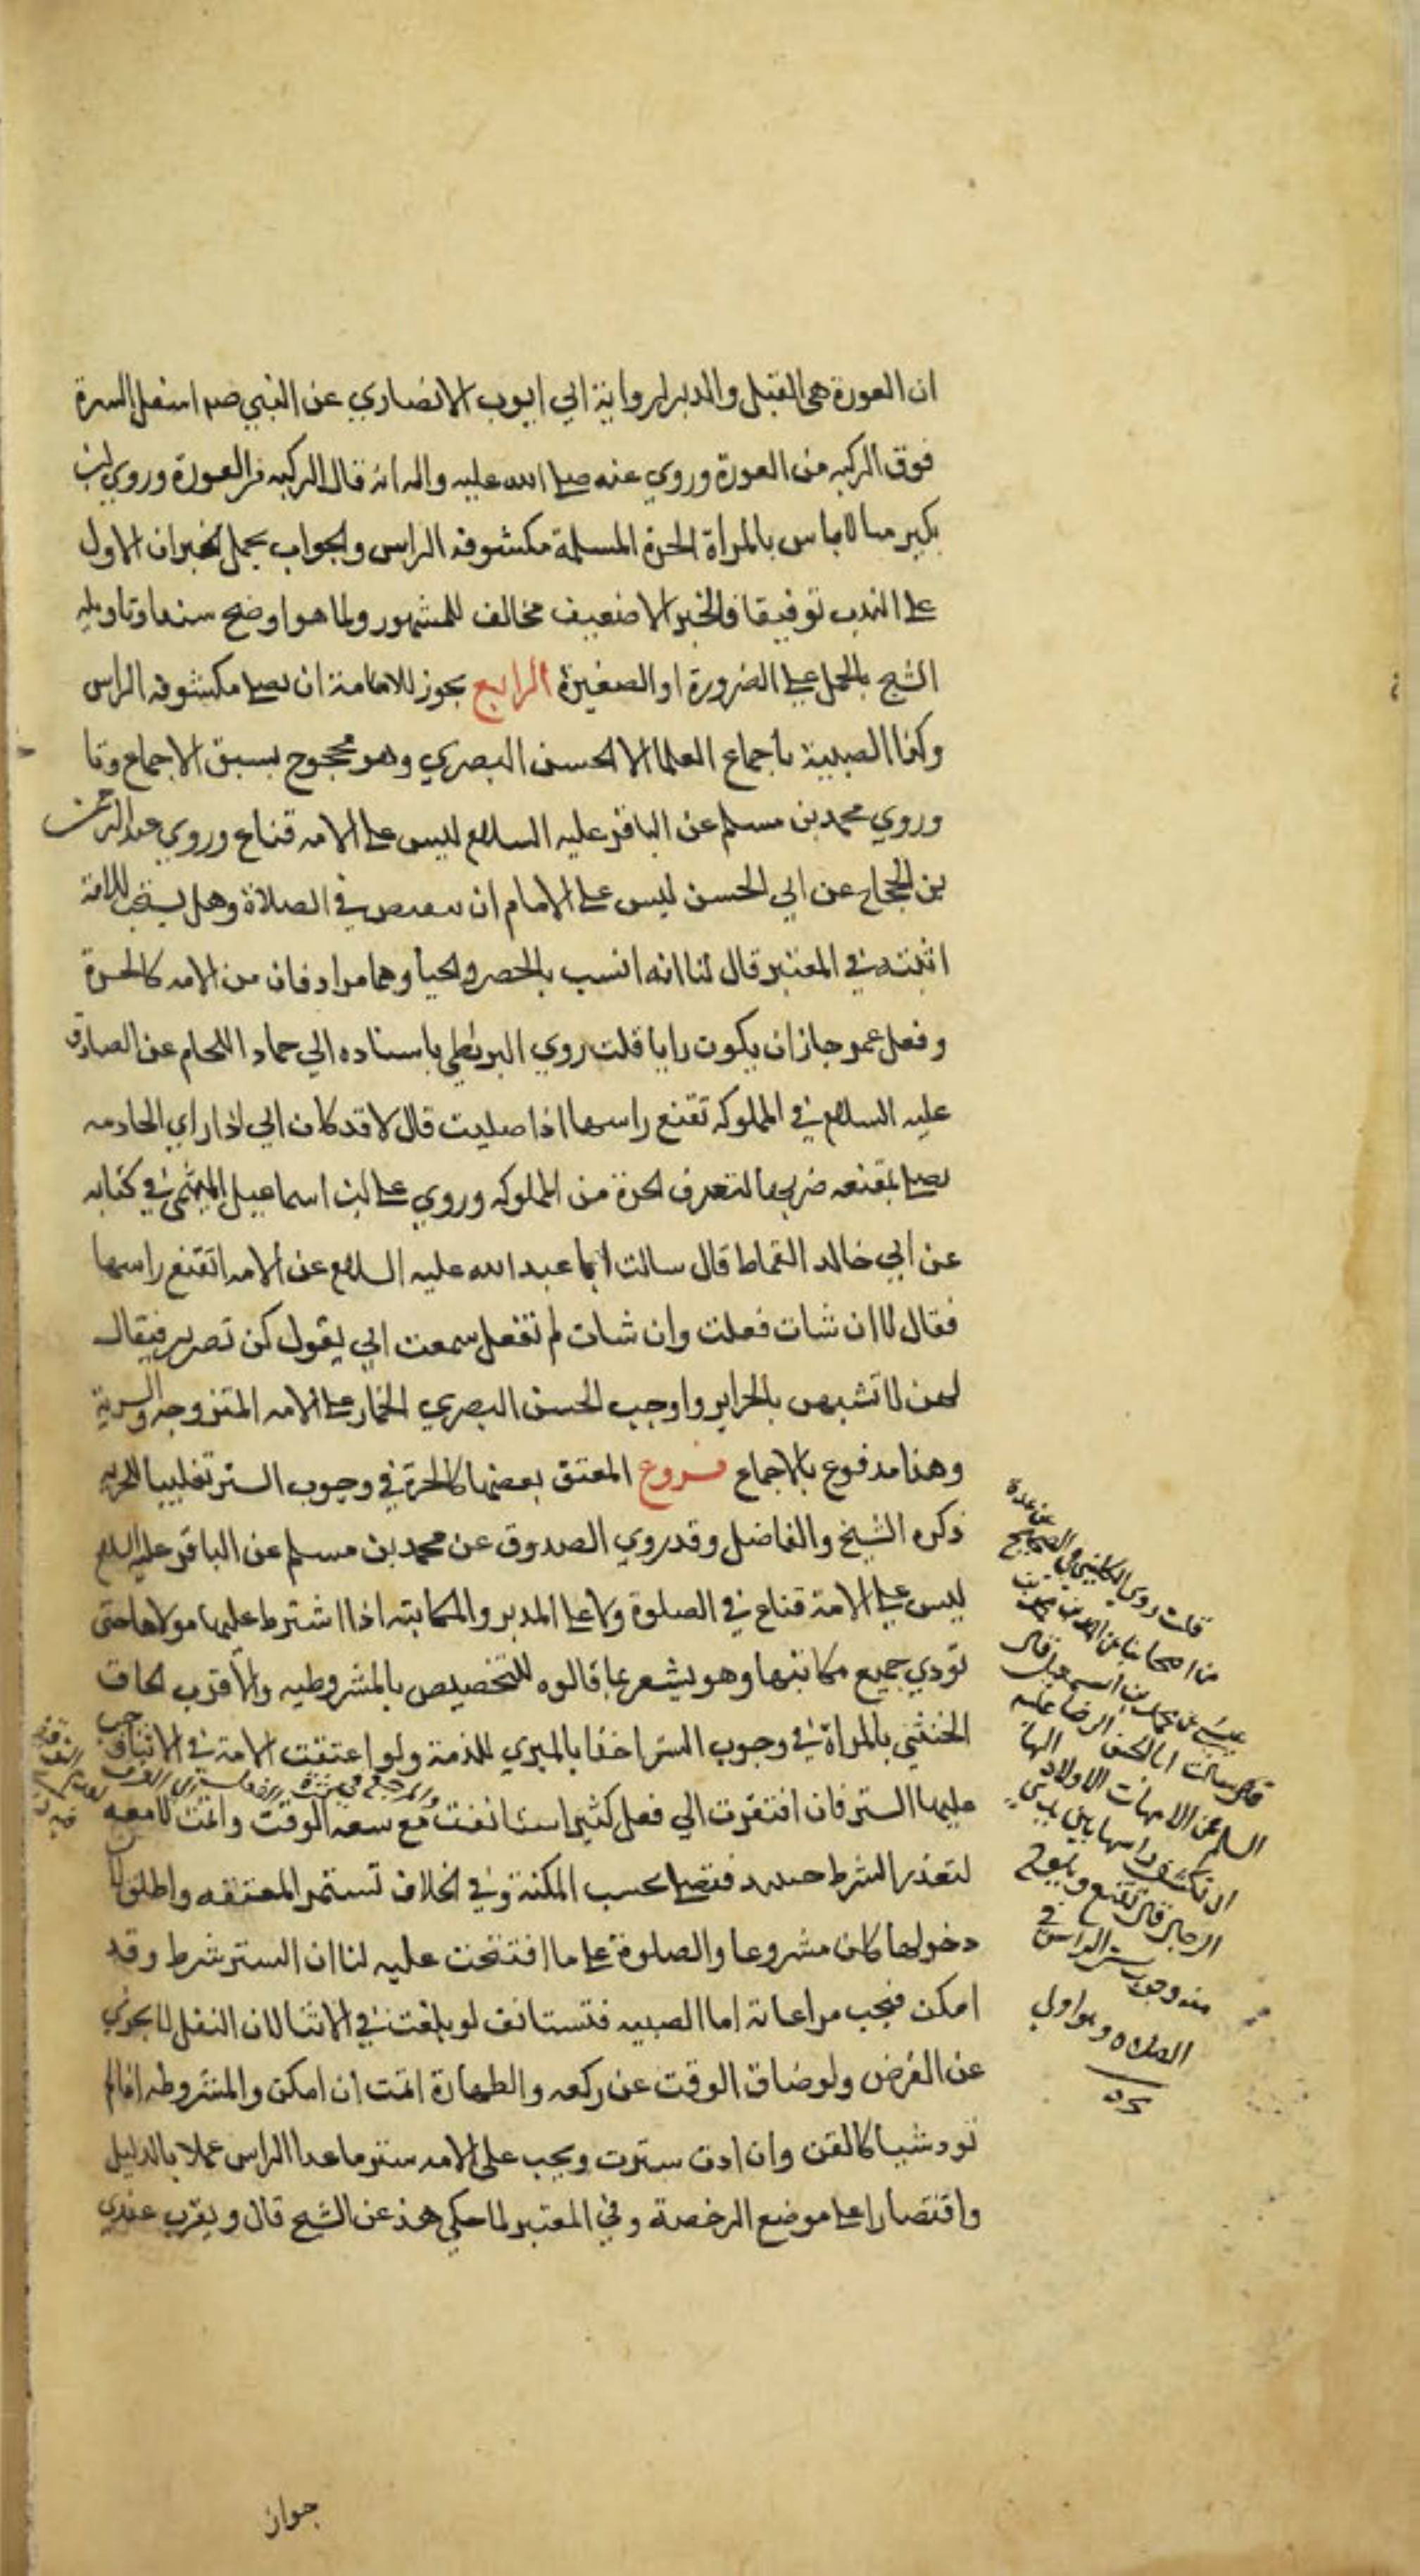 ان العورة هي القبل والدبر لرواية ابي ايوب الانصاري عن النبي صم اسفل السرة
فوق الركبه من العورة وروي عنه صلى الله عليه واله انه قال الركبه من العورة وروي ابن
بكير لا باس بالمراة الحرة المسلمة مكشوفه الراس والجواب بحمل الخبران الاول
على الندب توفيقا والخبر الا ضعيف مخالف للمشهور ولما هو اوضح سندا وتاويله
الشيخ بالحمل على الضرورة او الصغيرة الرابع يجوز للامامة ان تصلى مكشوفه الراس
وكذا الصبية باجماع العلما الا الحسن البصري وهو محجوج بسبق الاجماع وتا
وروي محمد بن مسلم عن الباقر عليه السلام ليس على الامه قناع وروي عبد الرحمن
بن الحجاج عن ابي الحسن ليس على الامام ان في الصلاة وهل يستحب للامة
اثبته في المعتبر قال لنا انه انسب بالخصر والحيا وهما مرادفان من الامه كالحرة
وفعل عمر جاز ان يكون رايا قلت روي البزنطي باسناده الي حماد اللحام عن الصادق
عليه السلام في المملوكه تقنع راسها اذا صليت قال لا قد كان ابي اذا راي الخادمه
تصلى بمقنعه ضربها لتعرف الحرة من المملوكه وروي على ابن اسماعيل الميثمي في كتابه
عن ابي خالد القماط قال سالت ابا عبد الله عليه السلام عن الامه اتقنع راسها
فقال لا ان شات فعلت وان شات لم تفعل سمعت ابي يقول كن تضربن فيقال
لهن لا تشبهن بالحراير واوجب الحسن البصري الخمار على الامه المتزوجه والسرية
وهذا مدفوع بالاجماع فروع المعتق بعضها كالحرة في وجوب الستر تغليبا للحريه
ذكره الشيخ والفاضل وقد روي الصدوق عن محمد بن مسلم عن الباقر عليه السلام
ليس على الامة قناع في الصلوة ولا على المدبر والمكاتبته اذا اشترط عليها مولاها حتى
تودي جميع مكاتبتها وهو يشعر بما قالوه للتخصيص بالمشروطيه والاقرب الحاق
الخنثي بالمراة في وجوب الستر اخذا بالمبري للذمة ولو اعتقت الامة في الاثنا وجب
عليها الستر فان افتقرت الي فعل كثير استانفت مع سعه الوقت واتمت لا معه
لتعذر الشرط فتصلى بحسب المكنة وفي الخلاف تستمر المعتقه واطلق لان
دخولها كان مشروعا والصلوة على ما افتتحت عليه لنا ان الستر شرط وقد
امكن فيجب مراعاته اما الصبيه فتستانف لو بلغت في الاثنا لان النفل لا يجزي
عن الفرض ولو ضاق الوقت عن ركعه والطهارة اتمت ان امكن والمشروطه اذا لم
تود شيا كالقن وان ادت سترت ويجب على الامه ستر ما عدا الراس عملا بالدليل
واقتصارا على موضع الرخصة وفي المعتبر لما حكي هذ عن الشيخ قال ويقرب عندي
قلت روي الكليني في الصحيح عن عدة
من اصحابنا عن احمد بن محمد بن
عيسى عن محمد بن اسمعيل قال
سالت ابا الحسن الرضا عليه
السلم عن الامهات الاولاد الها
ان تكشف راسها بين يدي
الرجال قال تقنع
منه وجوب ستر الراس في
الصلاه وهو اولي
جواز